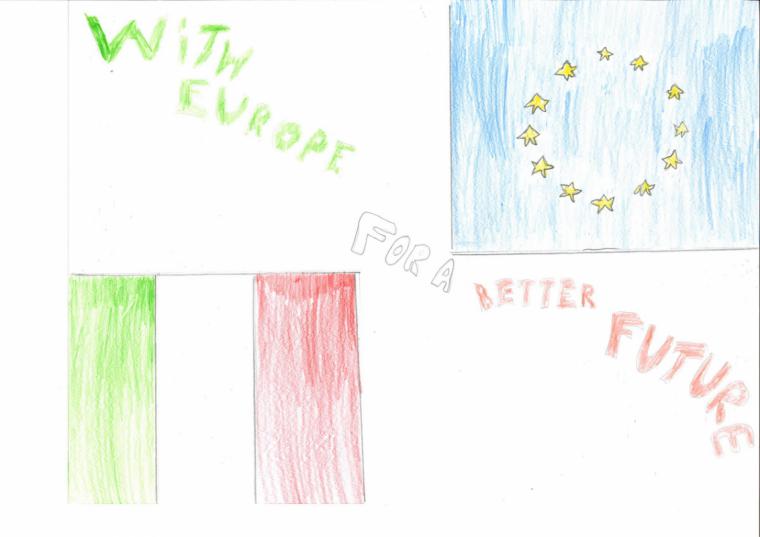 WiTH
EUROPE
FOR A
BETTER
FUTURE